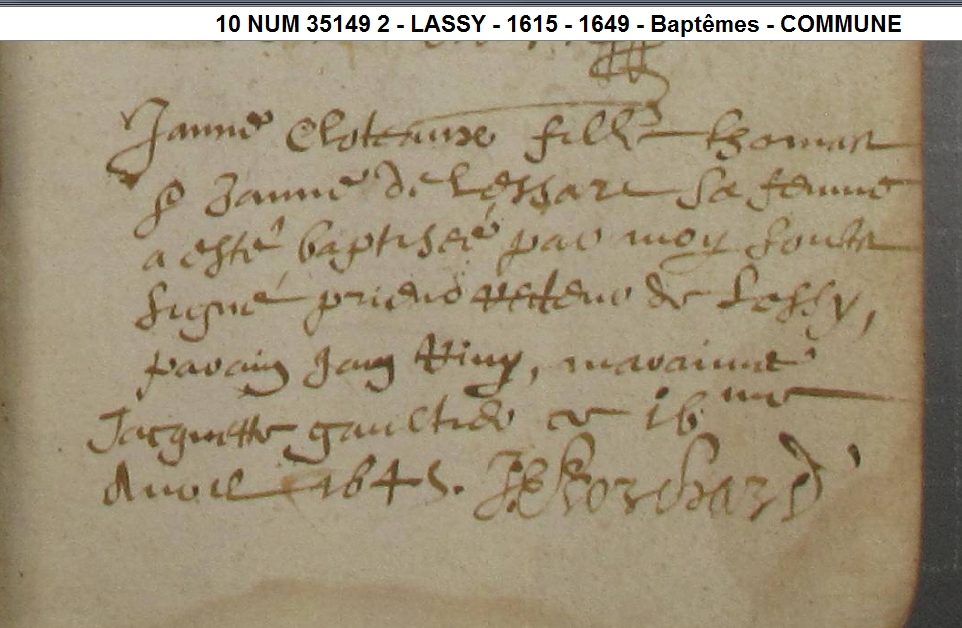 10 NUM 35149 2 - LASSY - 1615 - 1649 - Baptêmes - COMMUNE
Janne fille thomas
& Janne de Lessart sa femme
a esté baptisée par moy soubs
signé prieur recteur de Lassy,
parain Jan marainne
Jacquette gaultier ce 16 me
Avril 1645.